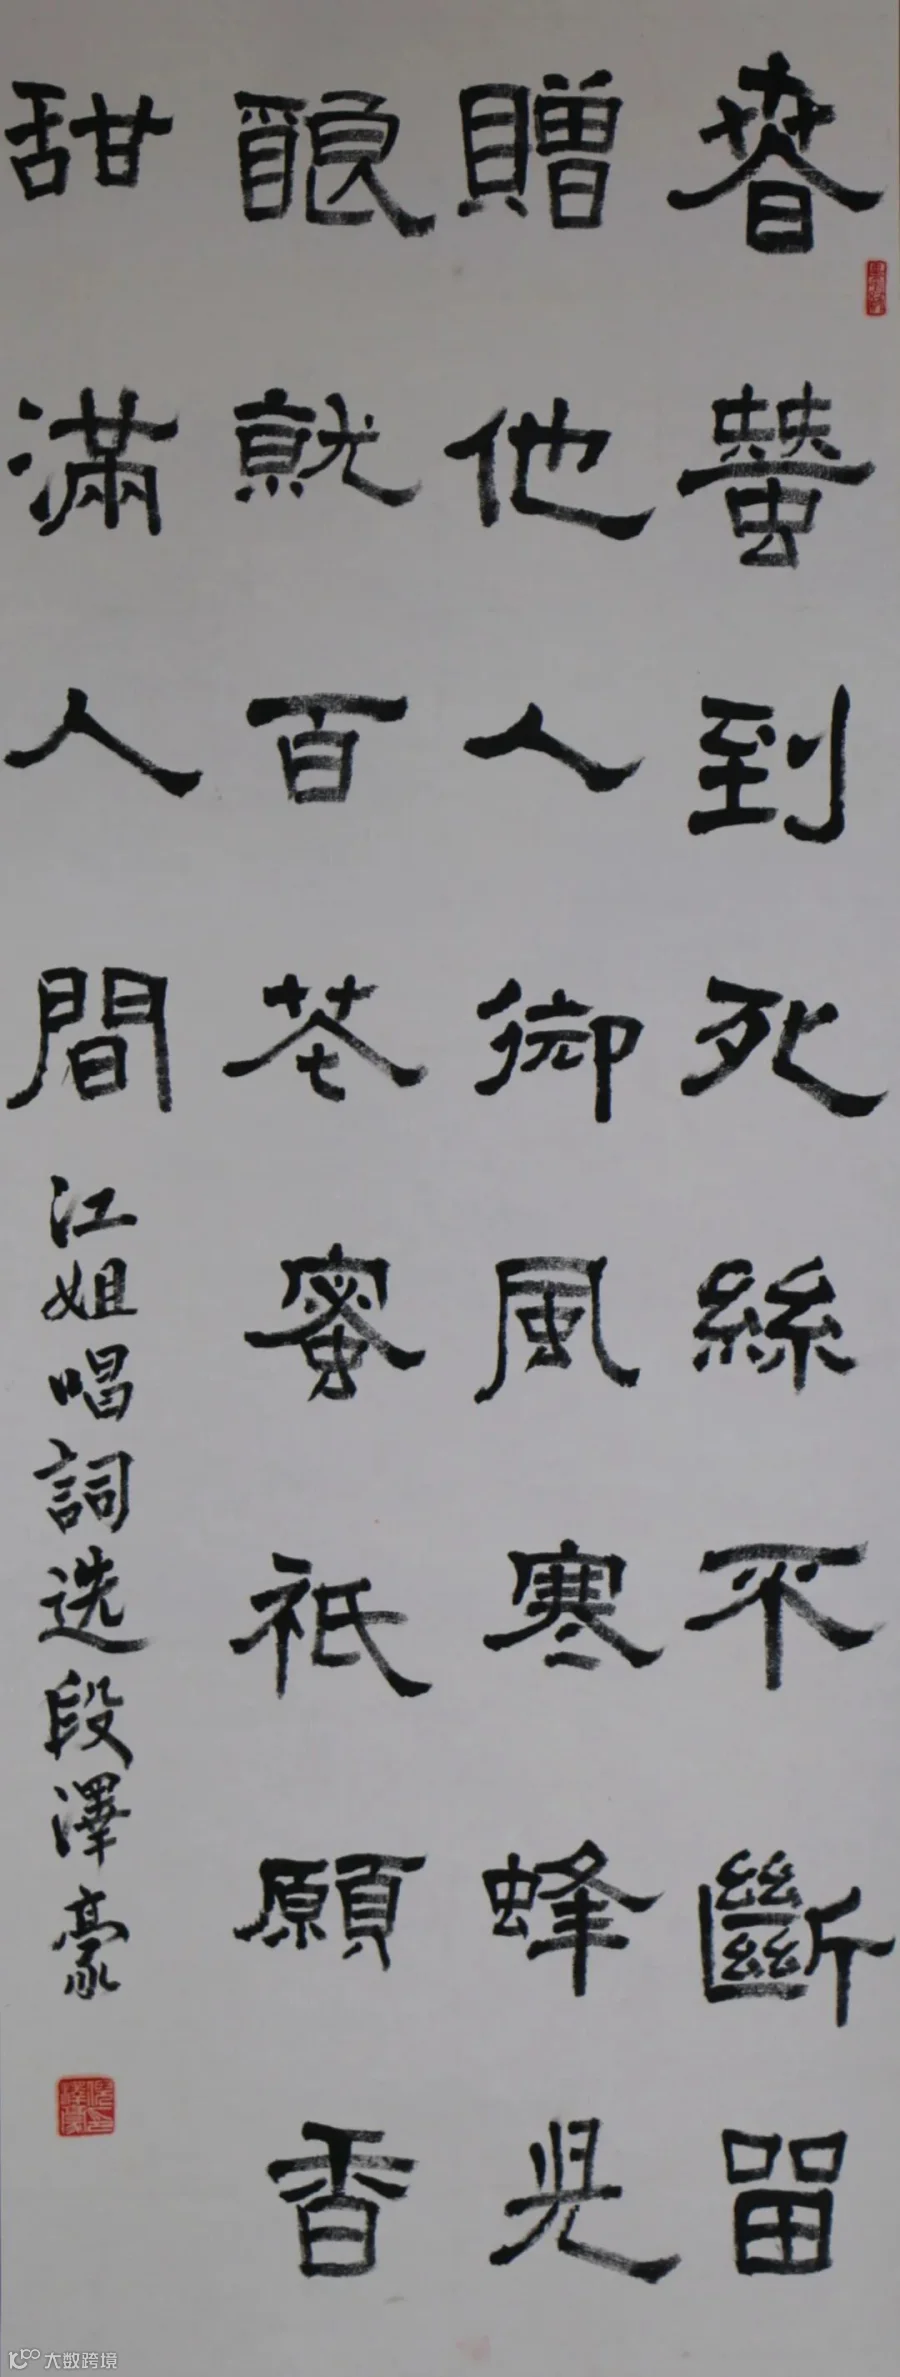 春蠶到死絲不斷留
贈他人御風寒蜂兒
釀就百花蜜祇願香
甜滿人間
江姐唱詞選段澤豪
大数跨境